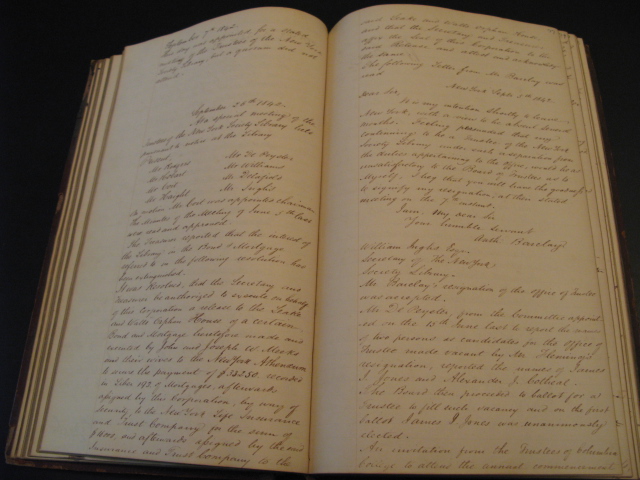 September 7th 1842.
This day was appointed for a stated
meeting of the Trustees of the New York
Society Library, but a quorum did not
attend.
September 26th 1842.
An special meeting of the
Trustees of the New York Society Library held
pursuant to notice at the Library
Present
Mr. De Peyster
Mr. Rogers
Mr. Williams
Mr. Robert
Mr. Delafield
Mr. Cort
Mr. Inglis
Mr. Haight
On motion Mr. Cort was appointed Chairman
The minutes of the Meeting of June 5th last
were read and approved.
The Treasurer reported that the interest of
the Library in the Bond & Mortgage
referred to in the following resolution has
been extinguished.
It was Resolved, that the Secretary and
Treasurer be authorized to execute on behalf
of this Corporation a release to the Leake
and Watts Orphan House of a certain
Bond and Mortgage heretofore made and
executed by John and Joseph W. Meeks
and their wives to the New York Athenaeum
to secure the payment of $ recorded
in Liber 192 of Mortgages, afterwards
assigned by this Corporation, by way of
security, to the New York Life Insurance
and Trust Company in the sum of
and afterwards assigned by the said
Insurance and Trust Company to the
said Leake and Watts Orphan House
and that the Secretary and Treasurer
affix the Seal of this Corporation to the
said Release and attest and acknowledge
the same.
The following letter from Mr. Barclay was
read
New York Sept. 5th 1842.
Dear Sir,
It is my intention shortly to leave
New York, with a view to be absent several
months. Feeling persuaded that my
continuing to be a Trustee of the New York
Society Library under such a separation from
the duties appertaining to the Office, would be as
unsatisfactory to the Board of Trustees as to
Myself, I beg that you will have the goodness
to signify my resignation, at their stated
meeting on the 7th instant.
I am My dear Sir
Your humble servant
Anth. Barclay
William Inglis Esqr.
Secretary of the New York
Society Library.
Mr. Barclay's resignation of the office of Trustee
was accepted.
Mr. De Peyster from the Committee appoint
ed on the 15th June last to report the names
of two persons as candidates for the office of
Trustee made vacant by Mr. Fleming's
resignation, reported the names of James
I. Jones and Alexander J.
The Board then proceeded to ballot for a
Trustee to fill such vacancy and on the first
ballot James I. Jones was unanimously
elected.
An invitation from the Trustees of Columbia
College to attend the annual commencement